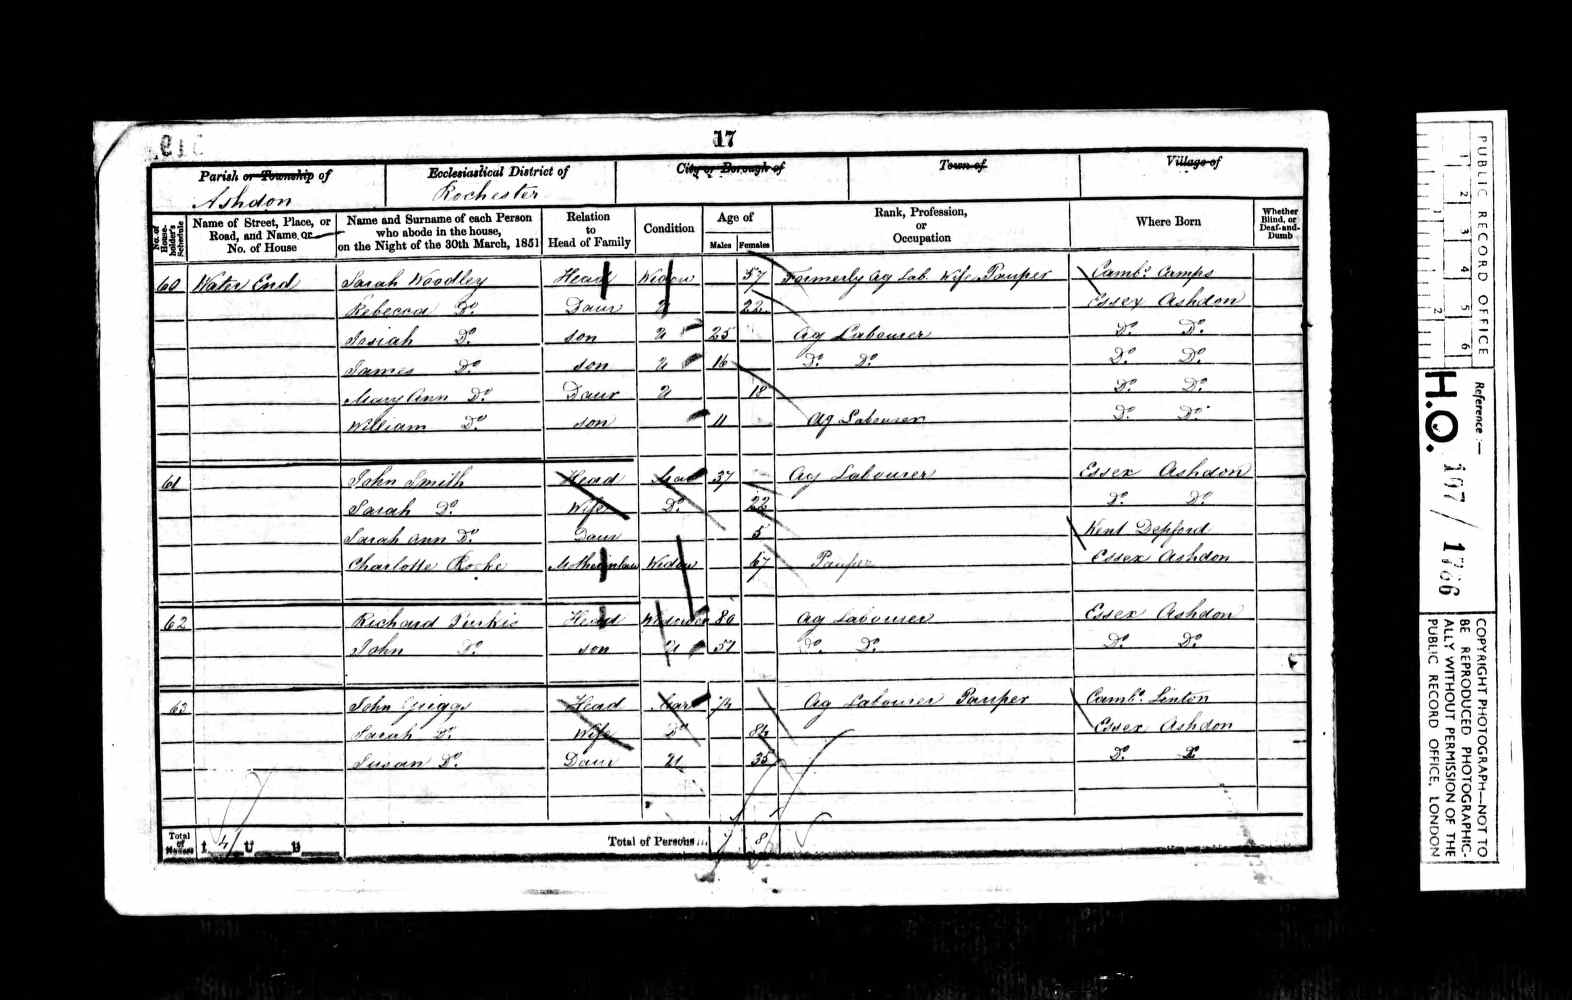 17
Parish or Township of
Ashdon
Ecclesiastical District of
Rochester
City or Borough of
Town of
Village of
No. of House-holder's Schedule
Name of Street, Place, or Road, and Name or No. of House
Name and Surname of each Person who abode in the house, on the Night of the 30th March, 1851
Relation to Head of Family
Condition
Age of
Males Females
Rank, Profession, or Occupation
Where Born
Whether Blind, or Deaf-and-Dumb
60 Water End Sarah Woodley Head Widow 57 Formerly Ag Lab Wife Pauper Camb.s Camps
Rebecca Do. Daur U 22 Essex Ashdon
Josiah Do. son U 25 Ag Labourer Do. Do.
James Do. son U 16 Do. Do. Do. Do.
Mary Ann Do. Daur U 18 Do. Do.
William Do. son 11 Ag Labourer Do. Do.
61 John Smith Head Mar 37 Ag Labourer Essex Ashdon
Sarah Do. Wife Do. Do. Do.
Sarah Ann Do. Daur 5 Kent Depford
Charlotte Motherinlaw Widow 67 Pauper Essex Ashdon
62 Richard Head Widower 80 Ag Labourer Essex Ashdon
John Do. son U Do. Do. Do. Do.
63 John Griggs Head Mar 74 Ag Labourer Pauper Camb.s Linton
Sarah Do. Wife Do. Essex Ashdon
Susan Do. Daur U 35 Do. Do.
Total of Houses
I 4 U B
Total of Persons... 7 8
PUBLIC RECORD OFFICE
1 2 3 4 5 6
1 2
Reference :—
H.O. 107 / 1766
COPYRIGHT PHOTOGRAPH—NOT TO
BE REPRODUCED PHOTOGRAPHIC-
ALLY WITHOUT PERMISSION OF THE
PUBLIC RECORD OFFICE, LONDON